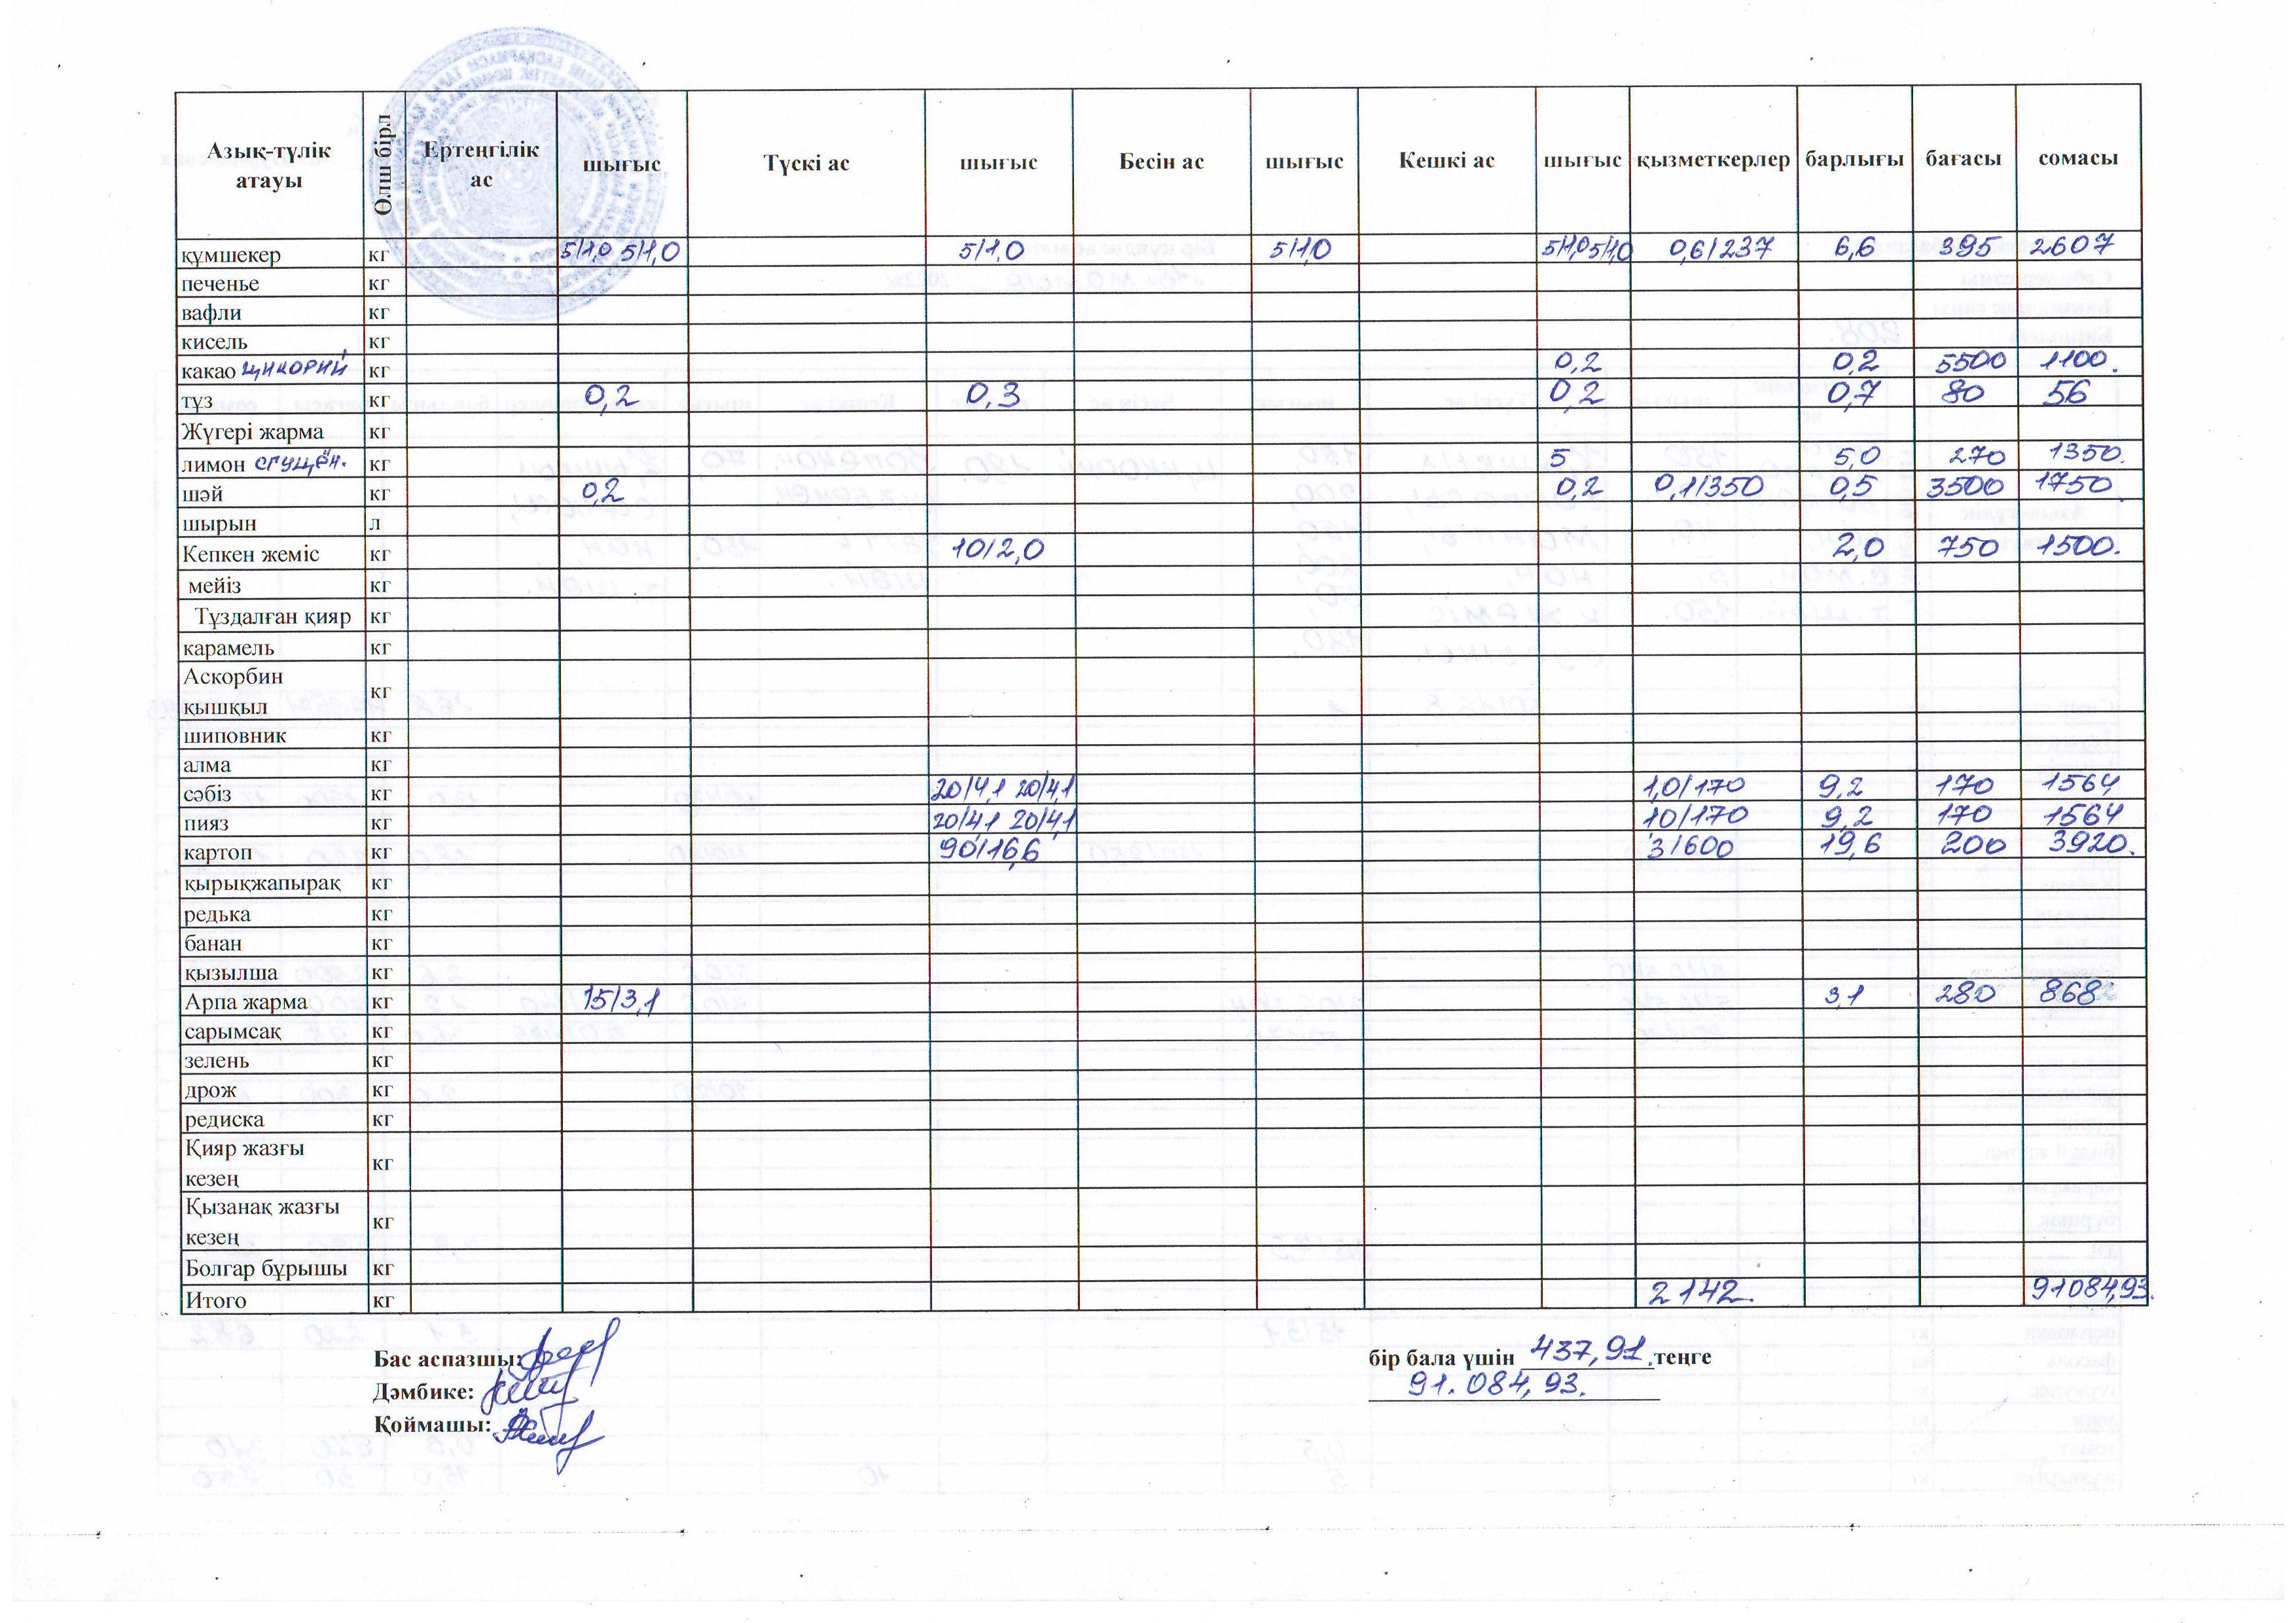 Азық-түлік атауы Өлш бірл Ертеңгілік ас шығыс Түскі ас шығыс Бесін ас шығыс Кешкі ас шығыс қызметкерлер барлығы бағасы сомасы
құмшекер кг 5/1,0 5/1,0 5/1,0 5/1,0 5/1,0 5/1,0 0,6/237 6,6 395 2607
печенье кг
вафли кг
кисель кг
какао цикорий кг 0,2 0,2 5500 1100.
тұз кг 0,2 0,3 0,2 0,7 80 56
Жүгері жарма кг
лимон сгущён. кг 5 5,0 270 1350.
шәй кг 0,2 0,2 0,1/350 0,5 3500 1750.
шырын л
Кепкен жеміс кг 10/2,0 2,0 750 1500.
мейіз кг
Тұздалған қияр кг
карамель кг
Аскорбин қышқыл кг
шиповник кг
алма кг
сәбіз кг 20/4,1 20/4,1 1,0/170 9,2 170 1564
пияз кг 20/4,1 20/4,1 1,0/170 9,2 170 1564
картоп кг 90/16,6 3/600 19,6 200 3920.
қырықжапырақ кг
редька кг
банан кг
қызылша кг
Арпа жарма кг 15/3,1 3,1 280 868
сарымсақ кг
зелень кг
дрож кг
редиска кг
Қияр жазғы кезең кг
Қызанақ жазғы кезең кг
Болгар бұрышы кг
Итого кг 2142. 91084,93.
Бас аспазшы: бір бала үшін 437,91.теңге
Дәмбике: 91.084,93.
Қоймашы: